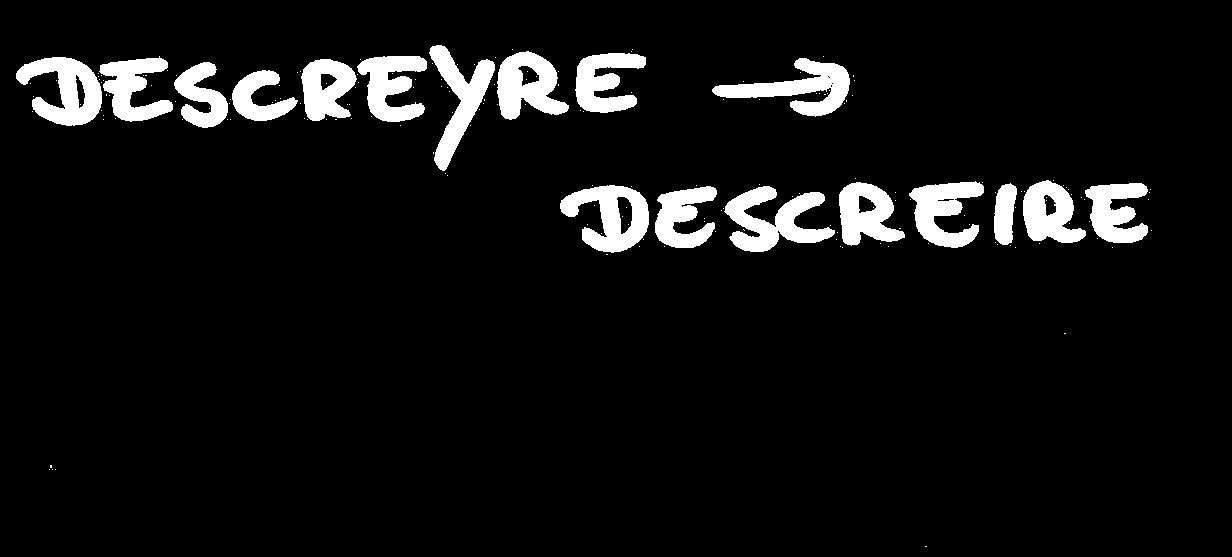 DESCREYRE →
DESCREIRE